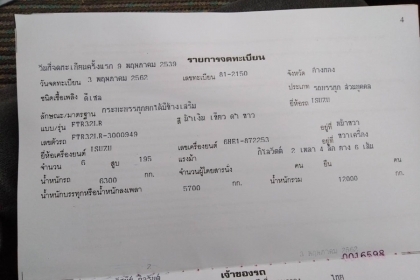 4
วันที่จดทะเบียนครั้งแรก 9 พฤษภาคม 2539
รายการจดทะเบียน
วันจดทะเบียน 3 พฤษภาคม 2562 เลขทะเบียน 81-2150 จังหวัด
ชนิดเชื้อเพลิง ดีเซล ประเภท รถบรรทุก ส่วนบุคคล
ลักษณะ/มาตรฐาน กระบะบรรทุก ยี่ห้อรถ ISUZU
แบบ/รุ่น FTR32LB สี เขียว ดำ ขาว
เลขตัวรถ FTR32LB-3000949 อยู่ที่
ยี่ห้อเครื่องยนต์ ISUZU เลขเครื่องยนต์ 6HE1-872253 อยู่ที่ ขวาเครื่อง
จำนวน 6 สูบ 195 แรงม้า กิโลวัตต์ 2 เพลา 4 ล้อ ยาง 6 เส้น
น้ำหนักรถ 6300 กก. จำนวนผู้โดยสารนั่ง คน ยืน คน
น้ำหนักบรรทุกหรือน้ำหนักลงเพลา 5700 กก. น้ำหนักรวม 12000 กก.
0016598
เจ้าของรถ